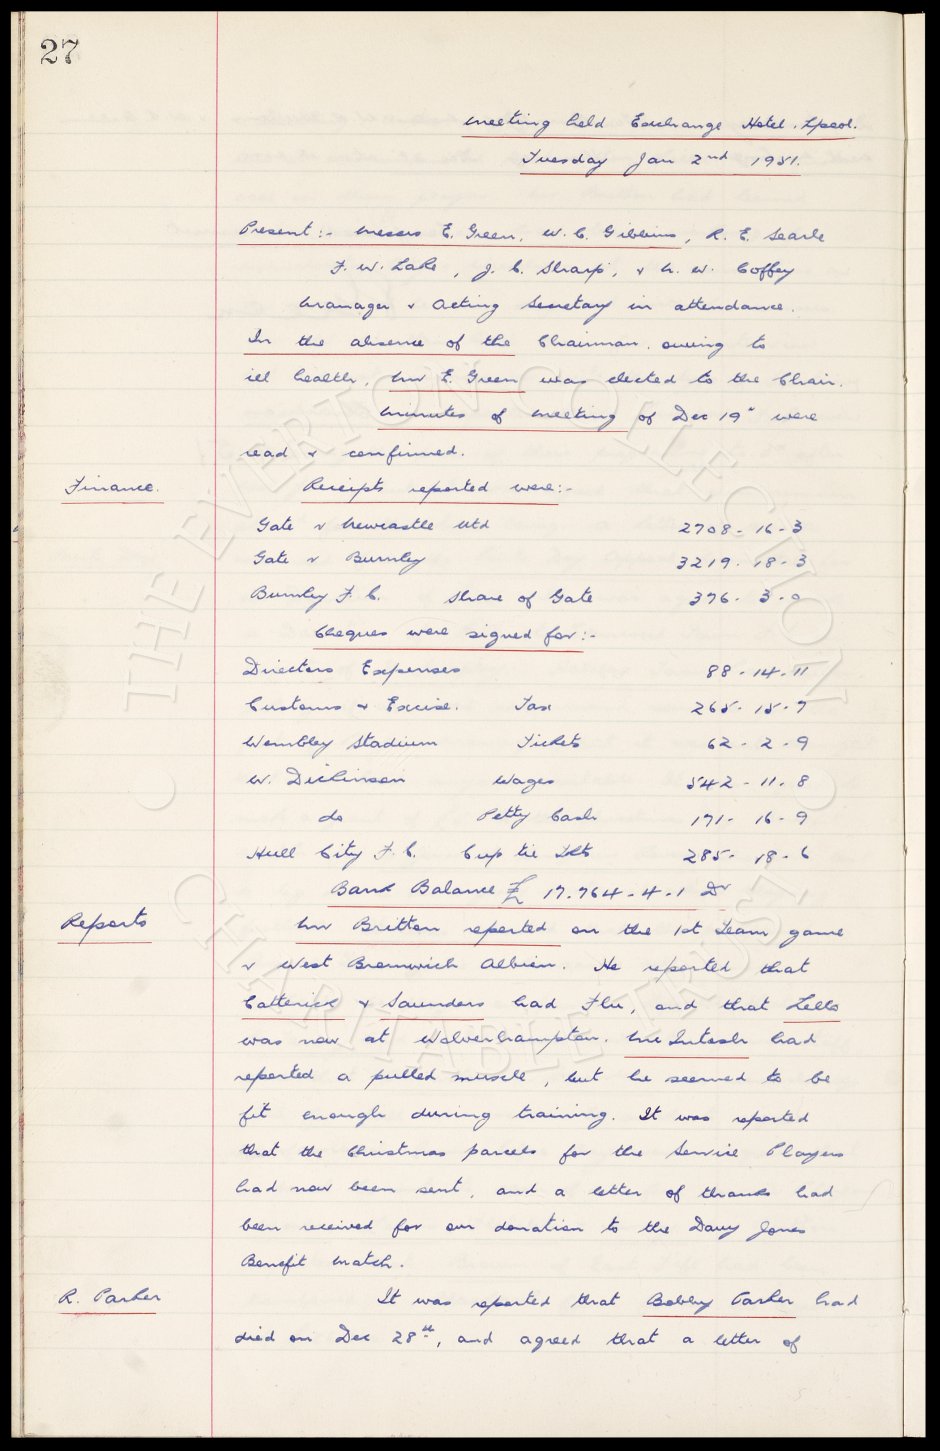 27
Meeting held Exchange Hotel. Lpool.
Tuesday Jan 2nd 1951.
Present:- Messrs E. Green, W. C. Gibbins, R. E. Searle
F. W. Lake, J. C. Sharp, & N. W. Coffey
Manager & Acting Secretary in attendance.
In the absence of the Chairman, owing to
ill health, Mr E. Green was elected to the Chair.
Minutes of meeting of Dec 19" were
read & confirmed.
Finance. Receipts reported were:-
Gate v Newcastle Utd 2708-16-3
Gate v Burnley 3219-18-3
Burnley F. C. Share of Gate 376-3-0
Cheques were signed for:-
Directors Expenses 88-14-11
Customs & Excise. Tax 265-15-7
Wembley Stadium Tickets 62-2-9
W. Dickinson Wages 542-11-8
do Petty Cash 171-16-9
Hull City F. C. Cup tie Tkts 285-18-6
Bank Balance £ 17.764-4-1 Dr
Reports Mr Britton reported on the 1st Team game
v West Bromwich Albion. He reported that
Catterick & Saunders had Flu, and that Lello
was now at Wolverhampton. McIntosh had
reported a pulled muscle, but he seemed to be
fit enough during training. It was reported
that the Christmas parcels for the Service Players
had now been sent, and a letter of thanks had
been received for our donation to the Davy Jones
Benefit Match.
R. Parker It was reported that Bobby Parker had
died on Dec 28th, and agreed that a letter of
THE EVERTON COLLECTION
CHARITABLE TRUST